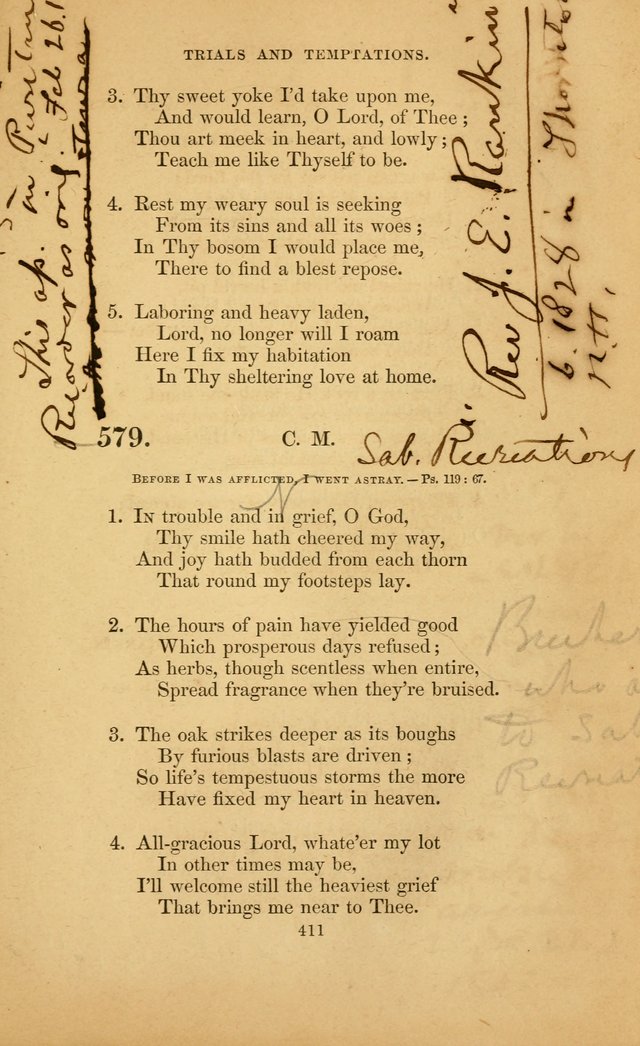 TRIALS AND TEMPTATIONS.
3. Thy sweet yoke I'd take upon me,
And would learn, O Lord, of Thee ;
Thou art meek in heart, and lowly ;
Teach me like Thyself to be.
4. Rest my weary soul is seeking
From its sins and all its woes ;
In Thy bosom I would place me,
There to find a blest repose.
5. Laboring and heavy laden,
Lord, no longer will I roam
Here I fix my habitation
In Thy sheltering love at home.
This ap. in Puritan
Recorder as orig. Feb 26.1
Rev J. E. Rankin
b. 1828 in Thornto
N.H.
579. C. M.
Sab. Recreations
BEFORE I WAS AFFLICTED, I WENT ASTRAY. — Ps. 119 : 67.
1. IN trouble and in grief, O God,
Thy smile hath cheered my way,
And joy hath budded from each thorn
That round my footsteps lay.
2. The hours of pain have yielded good
Which prosperous days refused ;
As herbs, though scentless when entire,
Spread fragrance when they're bruised.
who
to Sab
Recreat
3. The oak strikes deeper as its boughs
By furious blasts are driven ;
So life's tempestuous storms the more
Have fixed my heart in heaven.
4. All-gracious Lord, whate'er my lot
In other times may be,
I'll welcome still the heaviest grief
That brings me near to Thee.
411